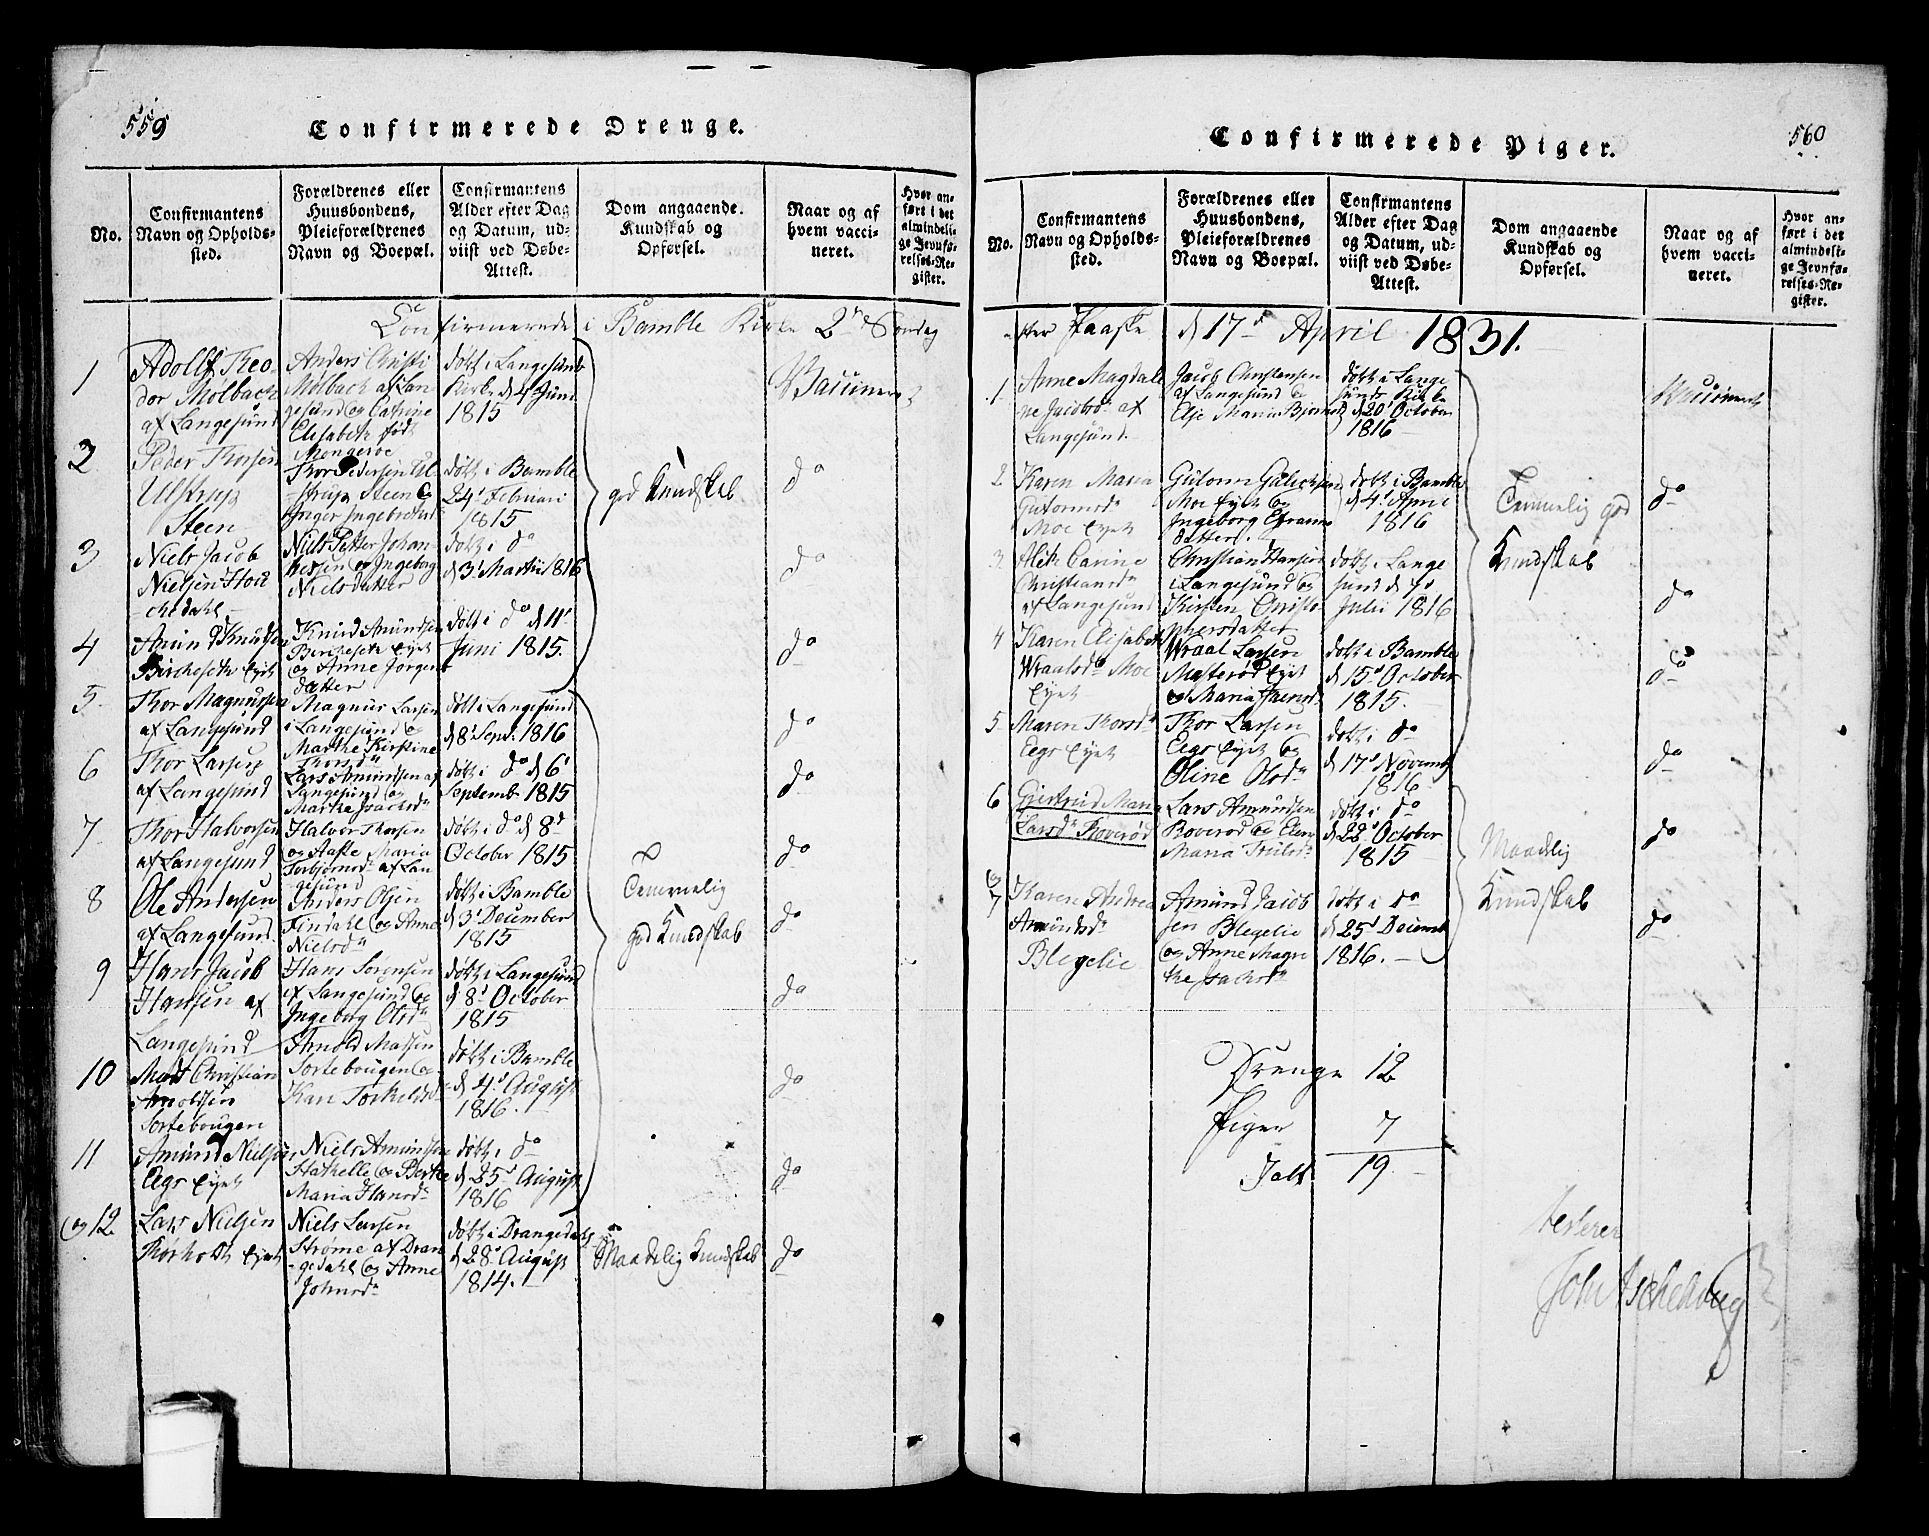 559
Confirmerede Drenge.
No.
Confirmantens
Navn og Opholds-
sted.
Forældrenes eller
Huusbondens,
Pleieforældrenes
Navn og Boepæl.
Confirmantens
Alder efter Dag
og Datum, ud-
viist ved Døbe-
Attest.
Dom angaaende
Kundskab og
Opførsel.
Naar og af
hvem vacci-
neret.
Hvor an-
ført i det
almindeli-
ge Jevnfø-
relses-Re-
gister.
Confirmerede i Bamble Kirke 2den Søndag
1
Adolff Theo-
dor Molbach
af Langesund
Anders Christi
Molbach af Lan
gesund og Catrine
Elisabeth født
døbt i Langesunds
Kirke d 4 Juni
1815
Vaccineret
2
Peder Thorsen
Ulstrups
Steen
Thor Pedersen Ul
strups Steen og
Inger Ingebretsd
døbt i Bamble
24' Februari
1815
god Kundskab
do
3
Niels Jacob
Nielsen Stok
kedahl
Niels Petter Johan
nessen og Ingeborg
Nielsdatter
døbt i do
d 3' Martii 1816
do
4
Amund Knudsen
Bircheseth Eyet
Knud Amundsen
Bircheseth Eyet
og Anne Jørgens
datter
døbt i do d 11'
Juni 1815.
do
5
Thor Magnussen
af Langesund
Magnus Larsen
i Langesund og
Marthe Kirstine
Thorsd
døbt i Langesund
d 8' Sept. 1816
do
6
Thor Larsen
af Langesund
Lars Amundsen af
Langesund og
Marthe Isachsd
døbt i do d 6'
Septemb 1815
do
7
Thor Halvorsen
af Langesund
Halvor Thorsen
og Aasle Maria
Torbjørnsd af Lan
gesund
døbt i do d 8d
October 1815
do
8
Ole Andersen
af Langesund
Anders Olsen
Findahl og Anne
Nielsd
døbt i Bamble
d 3' December
1815
Temmelig
god Kundskab
do
9
Hans Jacob
Hansen af
Langesund
Hans Sørensen
af Langesund og
Ingeborg Olsd
døbt i Langesund
d 8' October
1815
do
10
Mads Christian
Arnoldsen
Sortebougen
Arnold Massen
Sortebougen og
Kari Torkelsd
døbt i Bamble
d 4' August
1816.
do
11
Amund Nielsen
Eegs Eyet
Niels Amundsen
Stathelle og Berthe
Maria Hansd
døbt i do
d 25' August
1816
do
og 12
Lars Nielsen
Rørholt Eyet
Niels Larsen
Strømme af Dran
gedahl og Anne
Johnsd
døbt i Drangedahl
d 28' August
1814.
Maadelig Kundskab
do
Confirmerede Piger.
560
No.
Confirmantens
Navn og Opholds-
sted.
Forældrenes eller
Huusbondens,
Pleieforældrenes
Navn og Boepæl.
Confirmantens
Alder efter Dag
og Datum, ud-
viist ved Døbe-
Attest.
Dom angaaende
Kundskab og
Opførsel.
Naar og af
hvem vacci-
neret.
Hvor an-
ført i det
almindeli-
ge Jevnfø-
relses-Re-
gister.
efter Paaske d 17de April 1831.
1
Anne Magdale
ne Jacobsd af
Langesund
Jacob Christensen
af Langesund og
Else Maria
døbt i Lange
sunds Kirke
d 20' October
1816
Vaccineret
2
Karen Maria
Gutormsd
Moe Eyet
Gutorm
Moe Eyet og
Ingeborg Efraims
datter.
døbt i Bamble
d 4' April
1816
Temmelig god
Kundskab
do
3
Carine
Christiansd
af Langesund
Christian Hansen
i Langesund og
Kirsten Christo
phersdatter
døbt i Lange
sund d
Julii 1816
do
4
Karen Elisabeth
Wraalsd Moe
Eyet
Wraal Larsen
Eyet
og Maria
døbt i Bamble
d 15' October
1815.
do
5
Maren Thorsd
Eegs Eyet
Thor Larsen
Eegs Eyet og
Oline Olsd
døbt i do
d 17' Novemb
1816
do
6
Giertrud Maria
Larsd Roverød
Lars Amundsen
Roverød og
Maria Trulsd
døbt i do
d 28' October
1815
Maadelig
Kundskab
do
og
7
Karen Andrea
Amundsd
Blegelie
Amund Jacob
sen Blegelie
og Anne Magre
the Isachsd
døbt i do
d 25' Decemb
1816.
do
Drenge 12
Piger 7
Jalt 19.
testerer
John Aschehoug